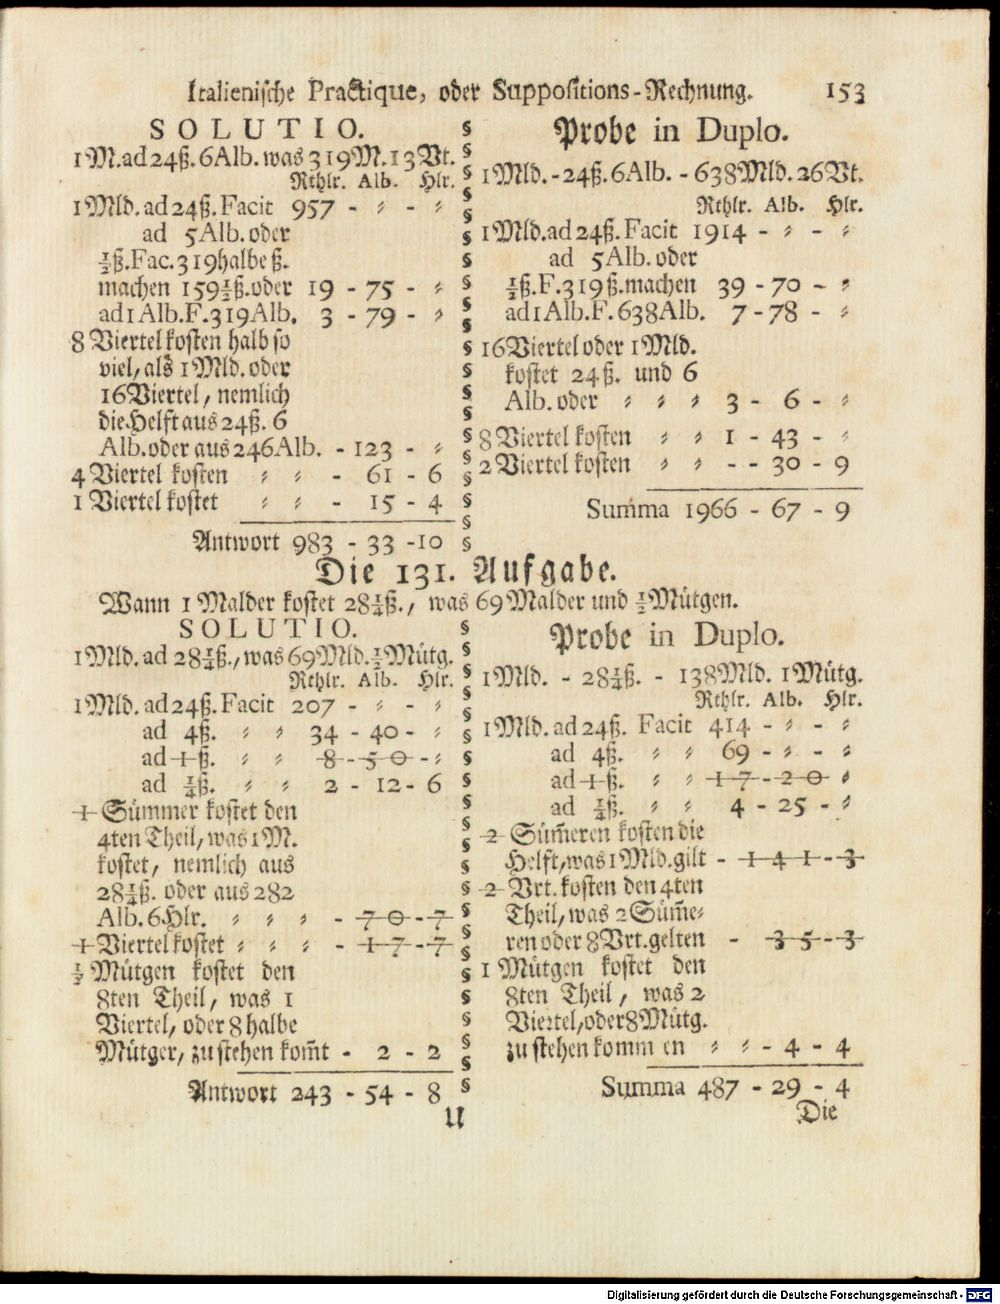 Italienische Practique, oder Suppositions-Rechnung. 153
SOLUTIO.
1 M. ad 24ß. 6 Alb. was 319 M. 13 Vt.
Rthlr. Alb. Hlr.
1 Mld. ad 24ß. Facit 957 - ⸗ - ⸗
ad 5 Alb. oder
½ß. Fac. 319 halbe ß.
machen 159½ß. oder 19 - 75 - ⸗
ad 1 Alb. F. 319 Alb. 3 - 79 - ⸗
8 Viertel kosten halb so
viel, als 1 Mld. oder
16 Viertel, nemlich
die Helft aus 24ß. 6
Alb. oder aus 246 Alb. - 123 - ⸗
4 Viertel kosten ⸗ ⸗ - 61 - 6
1 Viertel kostet ⸗ ⸗ - 15 - 4
Antwort 983 - 33 - 10
Probe in Duplo.
1 Mld. - 24ß. 6 Alb. - 638 Mld. 26 Vt.
Rthlr. Alb. Hlr.
1 Mld. ad 24ß. Facit 1914 - ⸗ - ⸗
ad 5 Alb. oder
½ß. F. 319 ß. machen 39 - 70 - ⸗
ad 1 Alb. F. 638 Alb. 7 - 78 - ⸗
16 Viertel oder 1 Mld.
kostet 24ß. und 6
Alb. oder ⸗ ⸗ ⸗ 3 - 6 - ⸗
8 Viertel kosten ⸗ ⸗ 1 - 43 - ⸗
2 Viertel kosten ⸗ ⸗ - - 30 - 9
Sum̃a 1966 - 67 - 9
Die 131. Aufgabe.
Wann 1 Malder kostet 28¼ß., was 69 Malder und ½ Mütgen.
SOLUTIO.
1 Mld. ad 28¼ß., was 69 Mld. ½ Mütg.
Rthlr. Alb. Hlr.
1 Mld. ad 24ß. Facit 207 - ⸗ - ⸗
ad 4ß. ⸗ ⸗ 34 - 40 - ⸗
ad 1 ß. ⸗ ⸗ 8 - 50 - ⸗
ad ¼ß. ⸗ ⸗ 2 - 12 - 6
1 Sümmer kostet den
4ten Theil, was 1 M.
kostet, nemlich aus
28¼ß. oder aus 282
Alb. 6 Hlr. ⸗ ⸗ ⸗ - 70 - 7
1 Viertel kostet ⸗ ⸗ ⸗ - 17 - 7
½ Mütgen kostet den
8ten Theil, was 1
Viertel, oder 8 halbe
Mütger, zu stehen kom̃t - 2 - 2
Antwort 243 - 54 - 8
Probe in Duplo.
1 Mld. - 28¼ß. - 138 Mld. 1 Mütg.
Rthlr. Alb. Hlr.
1 Mld. ad 24ß. Facit 414 - ⸗ - ⸗
ad 4ß. ⸗ ⸗ 69 - ⸗ - ⸗
ad 1 ß. ⸗ ⸗ 17 - 20 ⸗
ad ¼ß. ⸗ ⸗ 4 - 25 - ⸗
2 Süm̃eren kosten die
Helft, was 1 Mld. gilt - 141 - 3
2 Vrt. kosten den 4ten
Theil, was 2 Süm̃e⸗
ren oder 8 Vrt. gelten - 35 - 3
1 Mütgen kostet den
8ten Theil, was 2
Viertel, oder 8 Mütg.
zu stehen kommen ⸗ ⸗ - 4 - 4
Summa 487 - 29 - 4
U
Die
Digitalisierung gefördert durch die Deutsche Forschungsgemeinschaft - DFG